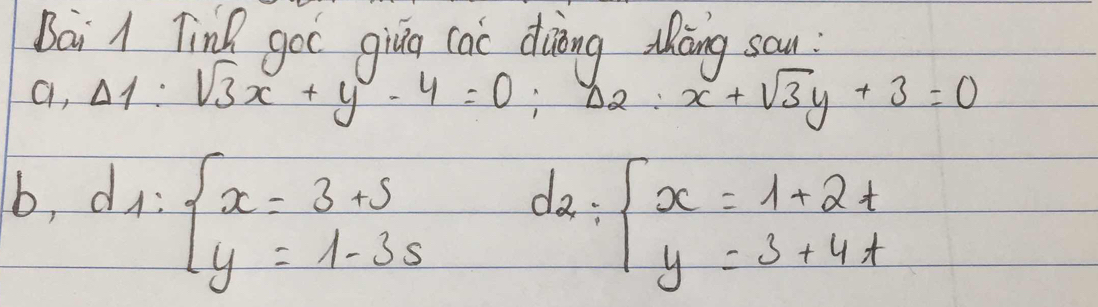 Bài 1 Tính góc giữa các đường thẳng sau:
a, Δ1: √3x + y - 4 = 0; Δ2: x + √3y + 3 = 0
b, d1: { x = 3 + s d2: { x = 1 + 2t
y = 1 - 3s y = 3 + 4t